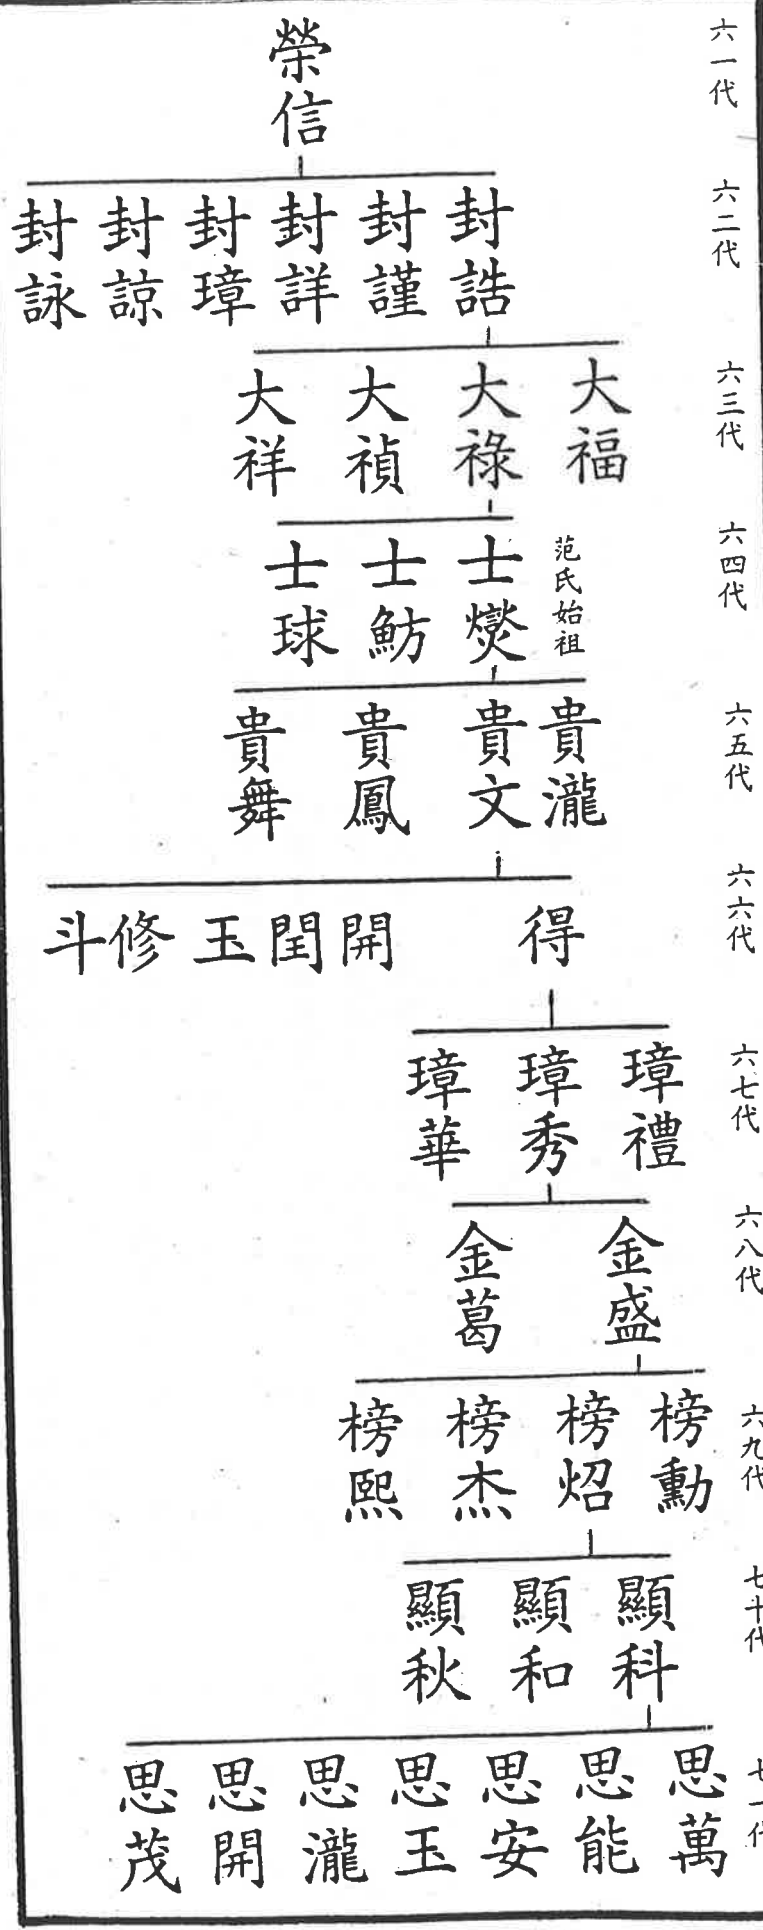 六一代
榮信
六二代
封誥 封謹 封詳 封璋 封諒 封詠
六三代
大福 大祿 大禎 大祥
六四代
范氏始祖
士燮 士魴 士球
六五代
貴瀧 貴文 貴鳳 貴舞
六六代
得 開 閏 玉 修 斗
六七代
璋禮 璋秀 璋華
六八代
金盛 金葛
六九代
榜勳 榜炤 榜杰 榜熙
七十代
顯科 顯和 顯秋
七一代
思萬 思能 思安 思玉 思瀧 思開 思茂